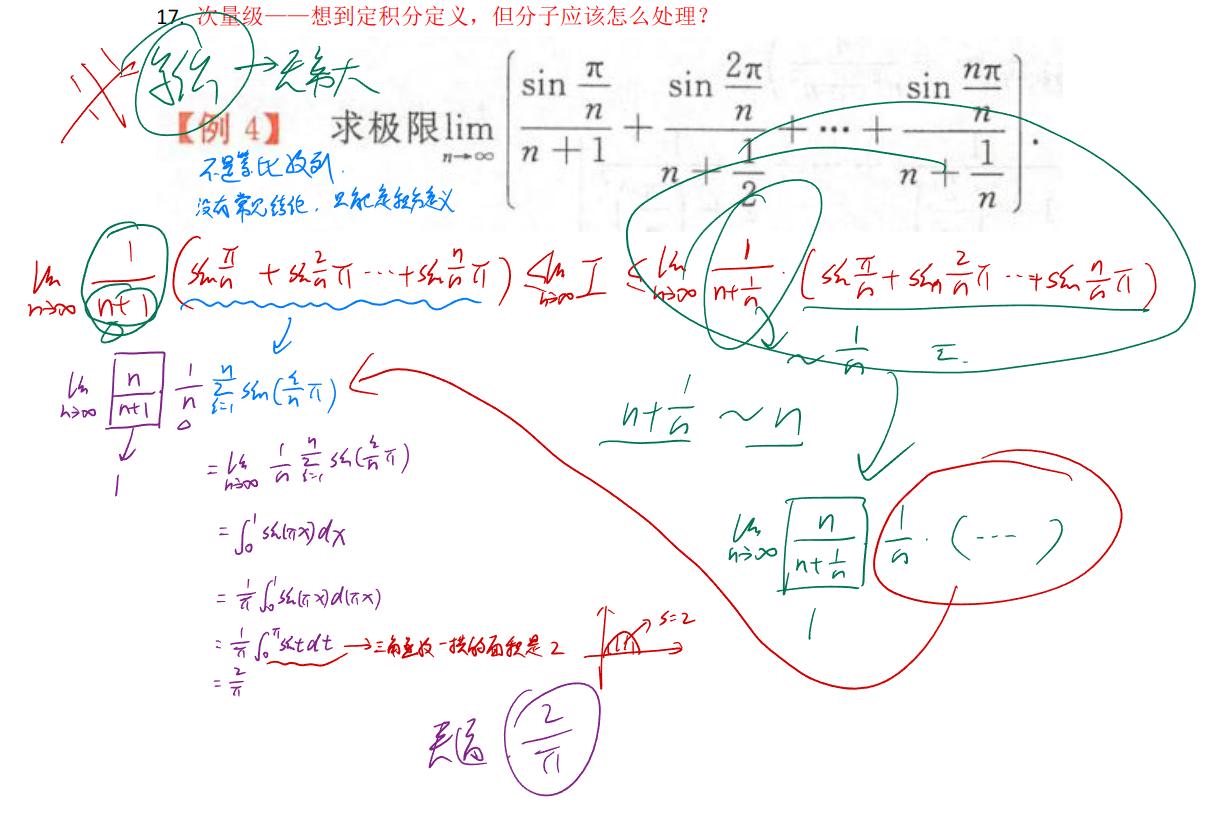 17. 次量级——想到定积分定义，但分子应该怎么处理？
→ 无穷大
【例 4】 求极限 lim n→∞ [ sin π/n / (n+1) + sin 2π/n / (n+1/2) + ··· + sin nπ/n / (n+1/n) ].
不是等比数列.
没有常见结论，只能定积分定义
lim n→∞ 1/(n+1) (sin π/n + sin 2/n π ··· + sin n/n π) ≤ lim n→∞ I ≤ lim n→∞ 1/(n+1/n) · (sin π/n + sin 2/n π ··· + sin n/n π)
~ 1/n Σ.
lim n→∞ n/(n+1) · 1/n Σ i=1 n sin(i/n π)
n+1/n ~ n
1
= lim n→∞ 1/n Σ i=1 n sin(i/n π)
lim n→∞ n/(n+1/n) 1/n · (---)
1
= ∫₀¹ sin(πx)dx
= 1/π ∫₀¹ sin(πx)d(πx)
= 1/π ∫₀^π sint dt → 三角函数一拱的面积是 2
S=2
= 2/π
2/π